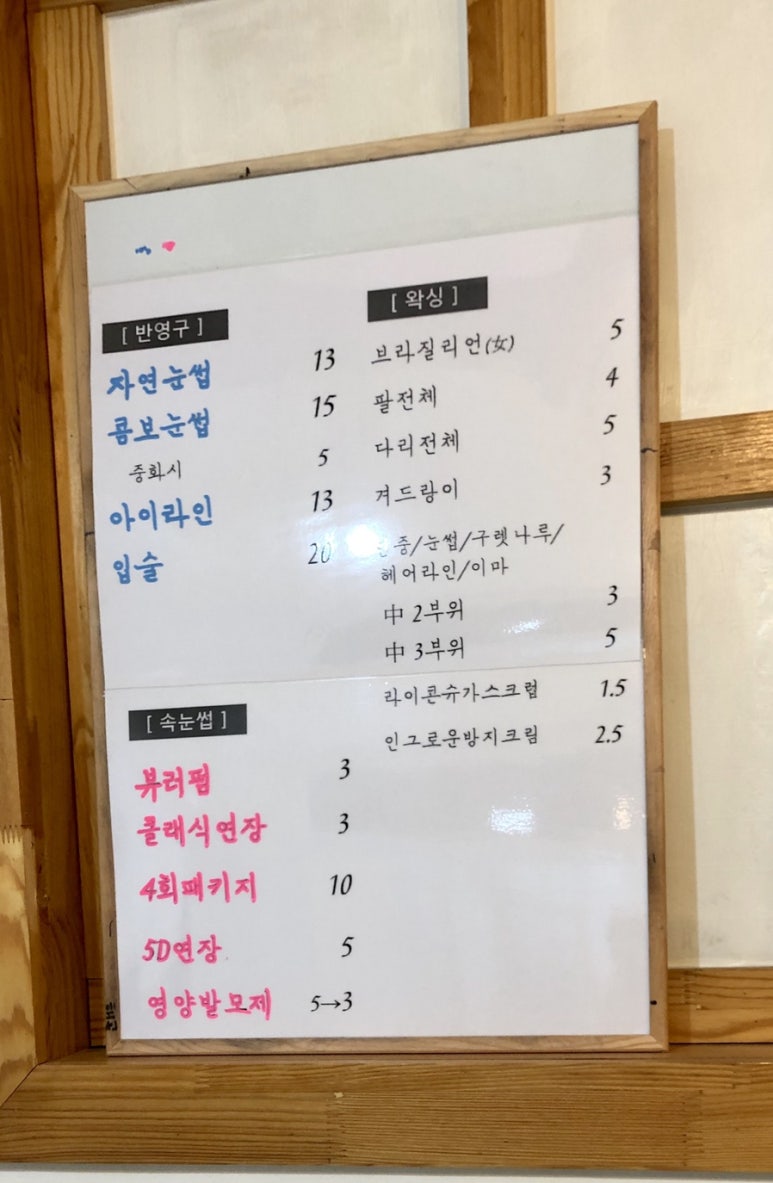 [ 반영구 ]
자연눈썹 13
콤보눈썹 15
중화시 5
아이라인 13
입술 20
[ 속눈썹 ]
뷰러펌 3
클래식연장 3
4회패키지 10
5D연장 5
영양발모제 5→3
[ 왁싱 ]
브라질리언(女) 5
팔전체 4
다리전체 5
겨드랑이 3
/눈썹/구렛나루/
헤어라인/이마
中 2부위 3
中 3부위 5
라이콘슈가스크럽 1.5
인그로운방지크림 2.5